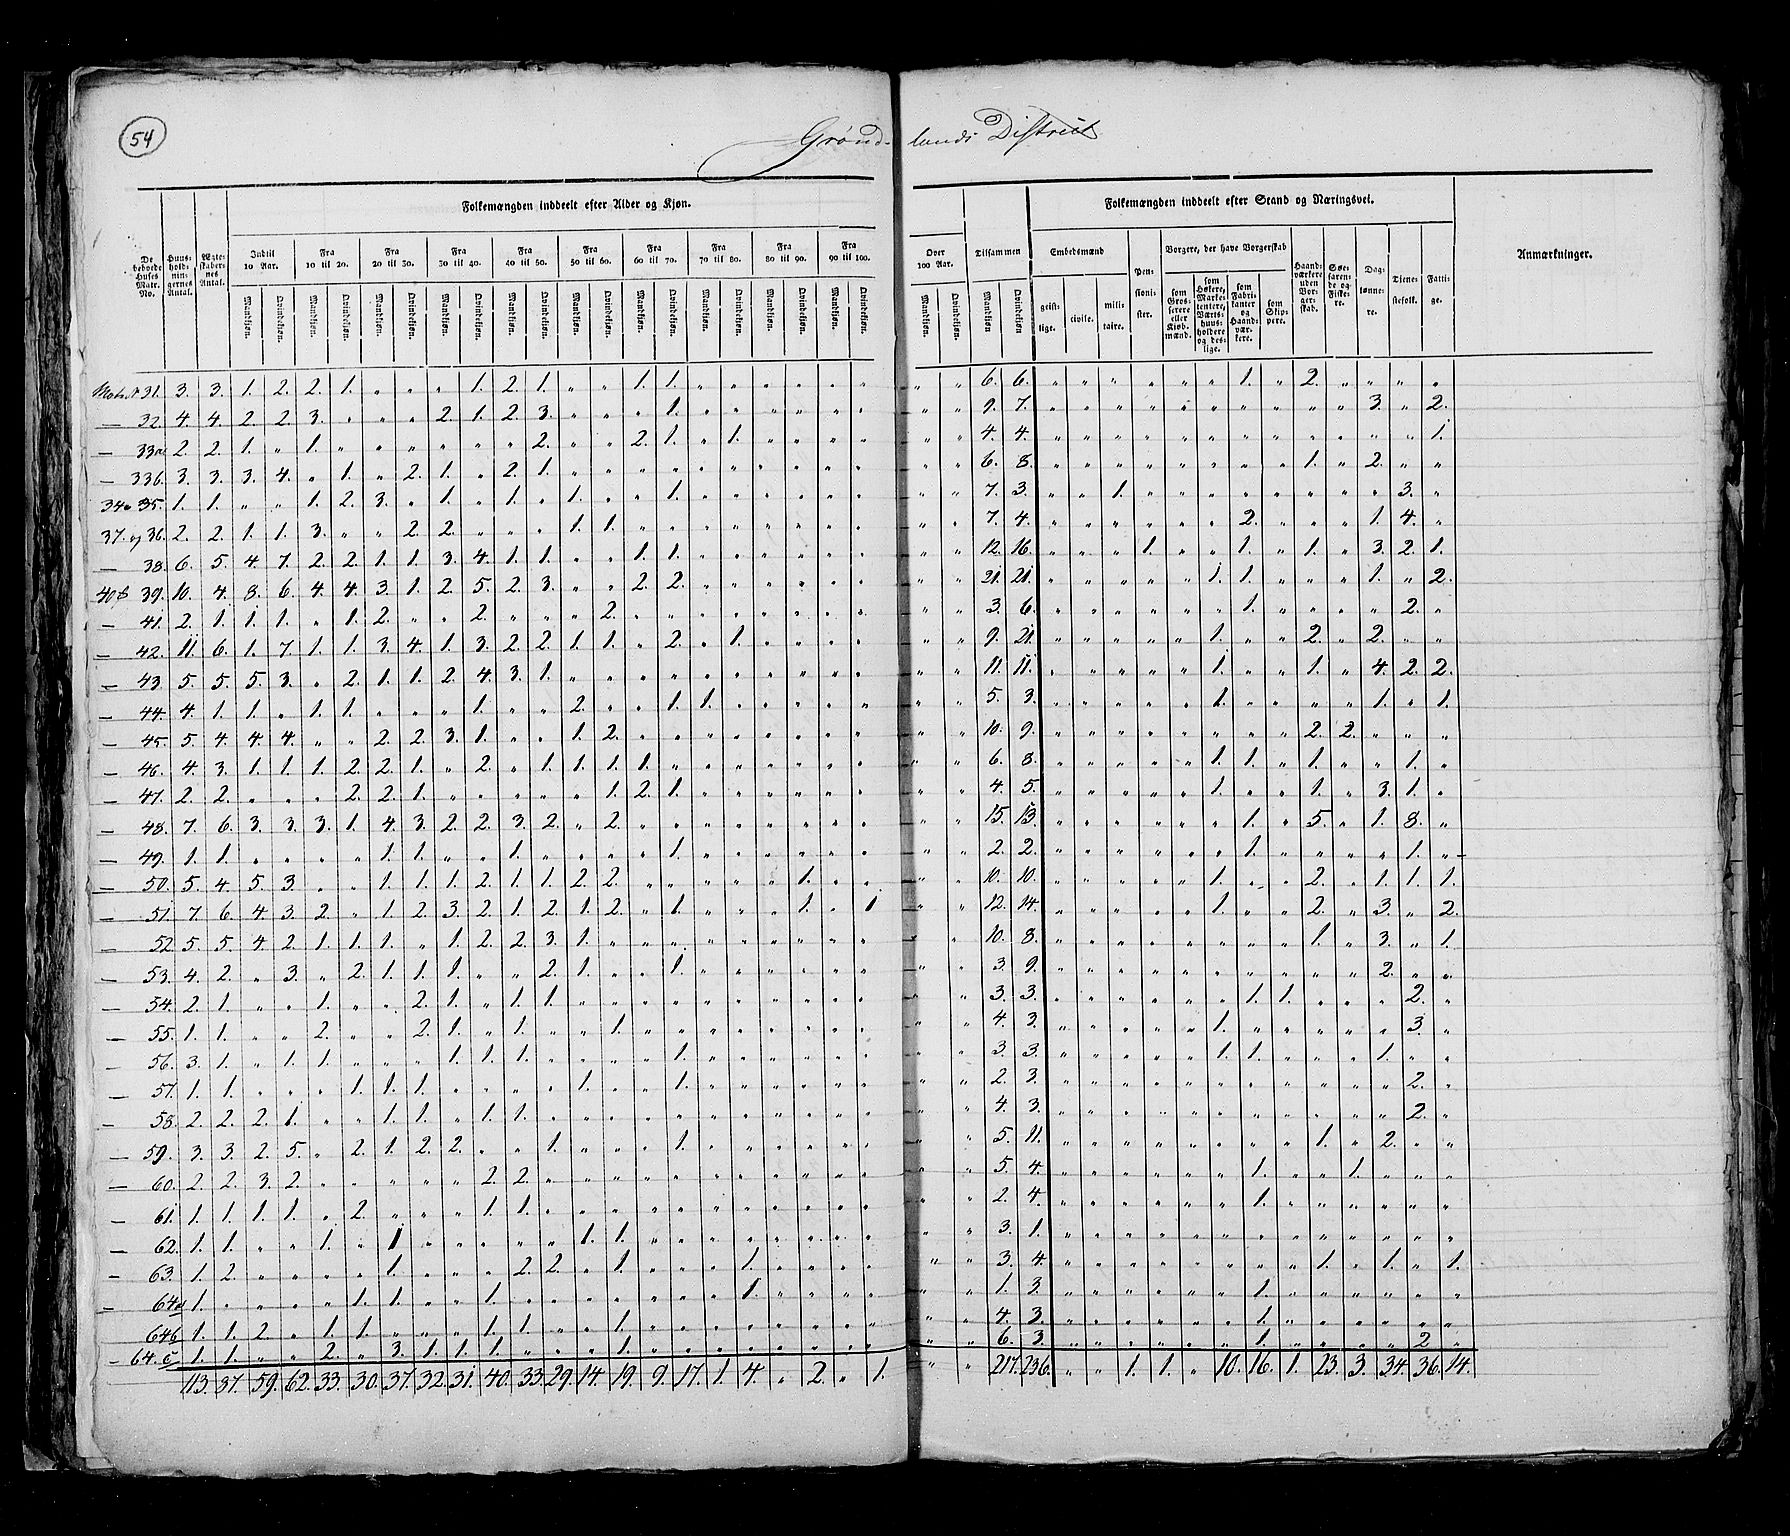 54
Grønlands District
De beboede Huses Matr. No.
Huusholdningernes Antal.
Ægteskabernes Antal.
Folkemængden inddeelt efter Alder og Kjøn.
Indtil 10 Aar. Fra 10 til 20. Fra 20 til 30. Fra 30 til 40. Fra 40 til 50. Fra 50 til 60. Fra 60 til 70. Fra 70 til 80. Fra 80 til 90. Fra 90 til 100. Over 100 Aar. Tilsammen
Mandkjøn. Qvindekjøn. Mandkjøn. Qvindekjøn. Mandkjøn. Qvindekjøn. Mandkjøn. Qvindekjøn. Mandkjøn. Qvindekjøn. Mandkjøn. Qvindekjøn. Mandkjøn. Qvindekjøn. Mandkjøn. Qvindekjøn. Mandkjøn. Qvindekjøn. Mandkjøn. Qvindekjøn. Mandkjøn. Qvindekjøn. Mandkjøn Qvindekjøn
Folkemængden inddeelt efter Stand og Næringsvei.
Embedsmænd
geistlige. civile. militaire.
Pensionister.
Borgere, der have Borgerskab
som Grosserere eller Kjøbmænd.
som Høkere, Marketentere, Værtshuusholdere og deslige.
som Fabrikanter og Haandværkere.
som Skippere.
Haandværkere uden Borgerskab.
Søefarende og Fiskere.
Daglønnere.
Tjenestefolk.
Fattige.
Anmærkninger.
31. 3. 3. 1. 2. 2. 1. „ „ „ 1. 2. 1. „ „ 1. 1. „ „ „ „ „ „ „ „ 6. 6. „ „ „ „ „ „ 1. „ 2. „ „ „ „
32 4. 4. 2. 2. 3. „ „ „ 2. 1. 2. 3. „ „ „ 1. „ „ „ „ „ „ „ „ 9. 7. „ „ „ „ „ „ „ „ „ „ 3. „ 2.
33a 2. 2. 1. „ 1. „ „ „ „ „ „ 2. „ „ 2. 1. „ 1. „ „ „ „ „ „ 4. 4. „ „ „ „ „ „ „ „ „ „ „ „ 1.
33b. 3. 3. 3. 4. „ 1. „ 2. 1. „ 2. 1. „ „ „ „ „ „ „ „ „ „ „ „ 6. 8. „ „ „ „ „ „ „ „ 1. „ 2. „ „
35. 1. 1. „ „ 1. 2. 3. „ 1. „ 1. „ 1. „ „ 1. „ „ „ „ „ „ „ „ 7. 3. „ „ 1. „ „ „ „ „ „ „ „ 3. „
37. og 36. 2. 2. 1. 1. 3. „ „ 2. 2. „ „ „ 1. 1. „ „ „ „ „ „ „ „ „ „ 7. 4. „ „ „ „ „ „ 2. „ „ „ 1. 4. „
38. 6. 5. 4. 7. 2. 2. 1. 1. 3. 4. 1. 1. „ „ 1. 1. „ „ „ „ „ „ „ „ 12. 16. „ „ „ 1. „ „ 1. „ 1. „ 3. 2. 1.
39. 10. 4. 8. 6. 4. 4. 3. 1. 2. 5. 2. 3. „ „ 2. 2. „ „ „ „ „ „ „ „ 21. 21. „ „ „ „ „ 1. 1. „ „ „ 1. „ 2.
41. 2. 1. 1. 1. „ 1. 2. „ „ 2. „ „ „ 2. „ „ „ „ „ „ „ „ „ „ 3. 6. „ „ „ „ „ „ 1. „ „ „ „ 2. „
42. 11. 6. 1. 7. 1. 1. 3. 4. 1. 3. 2. 2. 1. 1. „ 2. „ 1. „ „ „ „ „ „ 9. 21. „ „ „ „ „ 1. „ „ 2. „ 2. „ „
43. 5. 5. 5. 3. „ 2. 1. 1. 2. 4. 3. 1. „ „ „ „ „ „ „ „ „ „ „ „ 11. 11. „ „ „ „ „ 1. „ „ 1. „ 4. 2. 2.
44. 4. 1. 1. „ 1. 1. „ „ „ 1. „ „ 2. „ „ 1. 1. „ „ „ „ „ „ „ 5. 3. „ „ „ „ „ 1. „ „ „ „ 1. „ 1.
45. 5. 4. 4. 4. „ „ 2. 2. 3. 1. „ „ 1. 2. „ „ „ „ „ „ „ „ „ „ 10. 9. „ „ „ „ „ „ „ „ 2. 2. „ „ „
46. 4. 3. 1. 1. 1. 2. 2. 1. „ 2. „ 1. 1. 1. 1. „ „ „ „ „ „ „ „ „ 6. 8. „ „ „ „ „ 1. 1. „ 1. „ „ 1. „
47. 2. 2. „ „ „ 2. 2. 1. „ „ „ „ „ 1. 2. 1. „ „ „ „ „ „ „ „ 4. 5. „ „ „ „ „ 1. „ „ 1. „ 3. 1. „
48. 7. 6. 3. 3. 3. 1. 4. 3. 2. 2. 3. 2. „ 2. „ „ „ „ „ „ „ „ „ „ 15. 13. „ „ „ „ „ „ 1. „ 5. „ 1. 8. „
49. 1. 1. „ „ „ „ 1. 1. „ „ 1. „ „ „ „ 1. „ „ „ „ „ „ „ „ 2. 2. „ „ „ „ „ „ 1. „ „ „ „ 1. „
50. 5. 4. 5. 3. „ „ 1. 1. 1. 2. 1. 1. 2. 2. „ „ „ „ „ 1. „ „ „ „ 10. 10. „ „ „ „ „ 1. „ „ 2. „ 1. 1. 1.
51. 7. 6. 4. 3. 2. „ 1. 2. 3. 2. 1. 2. 1. 2. „ 1. „ „ „ 1. „ 1 „ „ 12. 14. „ „ „ „ „ 1. „ „ 2. „ 3. „ 2.
52 5. 5. 4. 2. 1. 1. 1. „ 1. 2. 2. 3. 1. „ „ „ „ „ „ „ „ „ „ „ 10. 8. „ „ „ „ „ „ „ „ 1. „ 3. „ 1.
53. 4. 2. „ 3. „ 2. 1. 1. 1. „ „ 2. 1. „ „ 1. „ „ „ „ „ „ „ „ 3. 9. „ „ „ „ „ „ „ „ „ „ 2. „ „
54. 2. 1. „ „ 1. „ „ 2. 1. „ 1. 1. „ „ „ „ „ „ „ „ „ „ „ „ 3. 3. „ „ „ „ „ „ 1. 1. „ „ „ 2. „
55. 1. 1. „ „ 2. „ „ 2. 1. „ 1. „ „ 1. „ „ „ „ „ „ „ „ „ „ 4. 3. „ „ „ „ „ 1. „ „ „ „ „ 3. „
56. 3. 1. „ 1. 1. „ „ „ 1. 1. 1. „ „ „ „ 1. „ „ „ „ „ „ „ „ 3. 3. „ „ „ „ „ 1. 1. „ „ „ 1. „ „
57. 1. 1. „ „ „ 1. 1. 1. „ „ „ „ 1. „ „ 1. „ „ „ „ „ „ „ „ 2. 3. „ „ „ „ „ „ „ „ „ „ „ 2. „
58. 2. 2. 2. 1. „ „ 1. 1. „ 1. 1. „ „ „ „ „ „ „ „ „ „ „ „ „ 4. 3. „ „ „ „ „ „ „ „ „ „ „ 2. „
59. 3. 3. 2. 5. „ 2. 1. 2. 2. „ „ 1. „ „ „ 1. „ „ „ „ „ „ „ „ 5. 11. „ „ „ „ „ „ „ „ 1. „ 2. „ „
60. 2. 2. 3. 2. „ „ „ „ „ 2. 2. „ „ „ „ „ „ „ „ „ „ „ „ „ 5. 4. „ „ „ „ „ „ 1. „ „ 1. „ „ „
61. 1. 1. 1. 1. „ 2. „ „ „ 1. 1. „ „ „ „ „ „ „ „ „ „ „ „ „ 2. 4. „ „ „ „ „ „ 1. „ „ „ „ „ „
62. 1. 1. „ „ 1. „ 1 „ „ „ „ „ 1. 1. „ „ „ „ „ „ „ „ „ „ 3. 1. „ „ „ „ „ „ „ „ „ „ „ „ „
63. 1. 2. „ „ „ „ 1. „ „ „ 2. 2. „ 1. „ „ „ 1. „ „ „ „ „ „ 3. 4. „ „ „ „ „ „ „ „ 1. „ 1. „ 1.
64a 1. „ „ „ „ 1. 1. „ „ 1. „ „ „ „ „ „ „ 1. „ „ „ „ „ „ 1. 3. „ „ „ „ „ „ 1. „ „ „ „ „ „
64b 1. 1. 2. „ 1. 1. „ „ „ 1. 1. „ „ 1. „ „ „ „ „ „ „ „ „ „ 4. 3. „ „ „ „ „ „ 1. „ „ „ „ „ „
64.c 1. 1. „ „ 2. „ 3. 1. 1. 1. „ „ „ 1. „ „ „ „ „ „ „ „ „ „ 6. 3. „ „ „ „ „ „ 1. „ „ „ „ 2 „
113. 87. 59. 62. 33. 30. 37. 32. 31. 40. 33. 29. 14. 19. 9. 17. 1. 4. „ 2. „ 1. „ „ 217. 236. „ „ 1. 1. „ 10. 16. 1. 23. 3. 34. 36. 14.